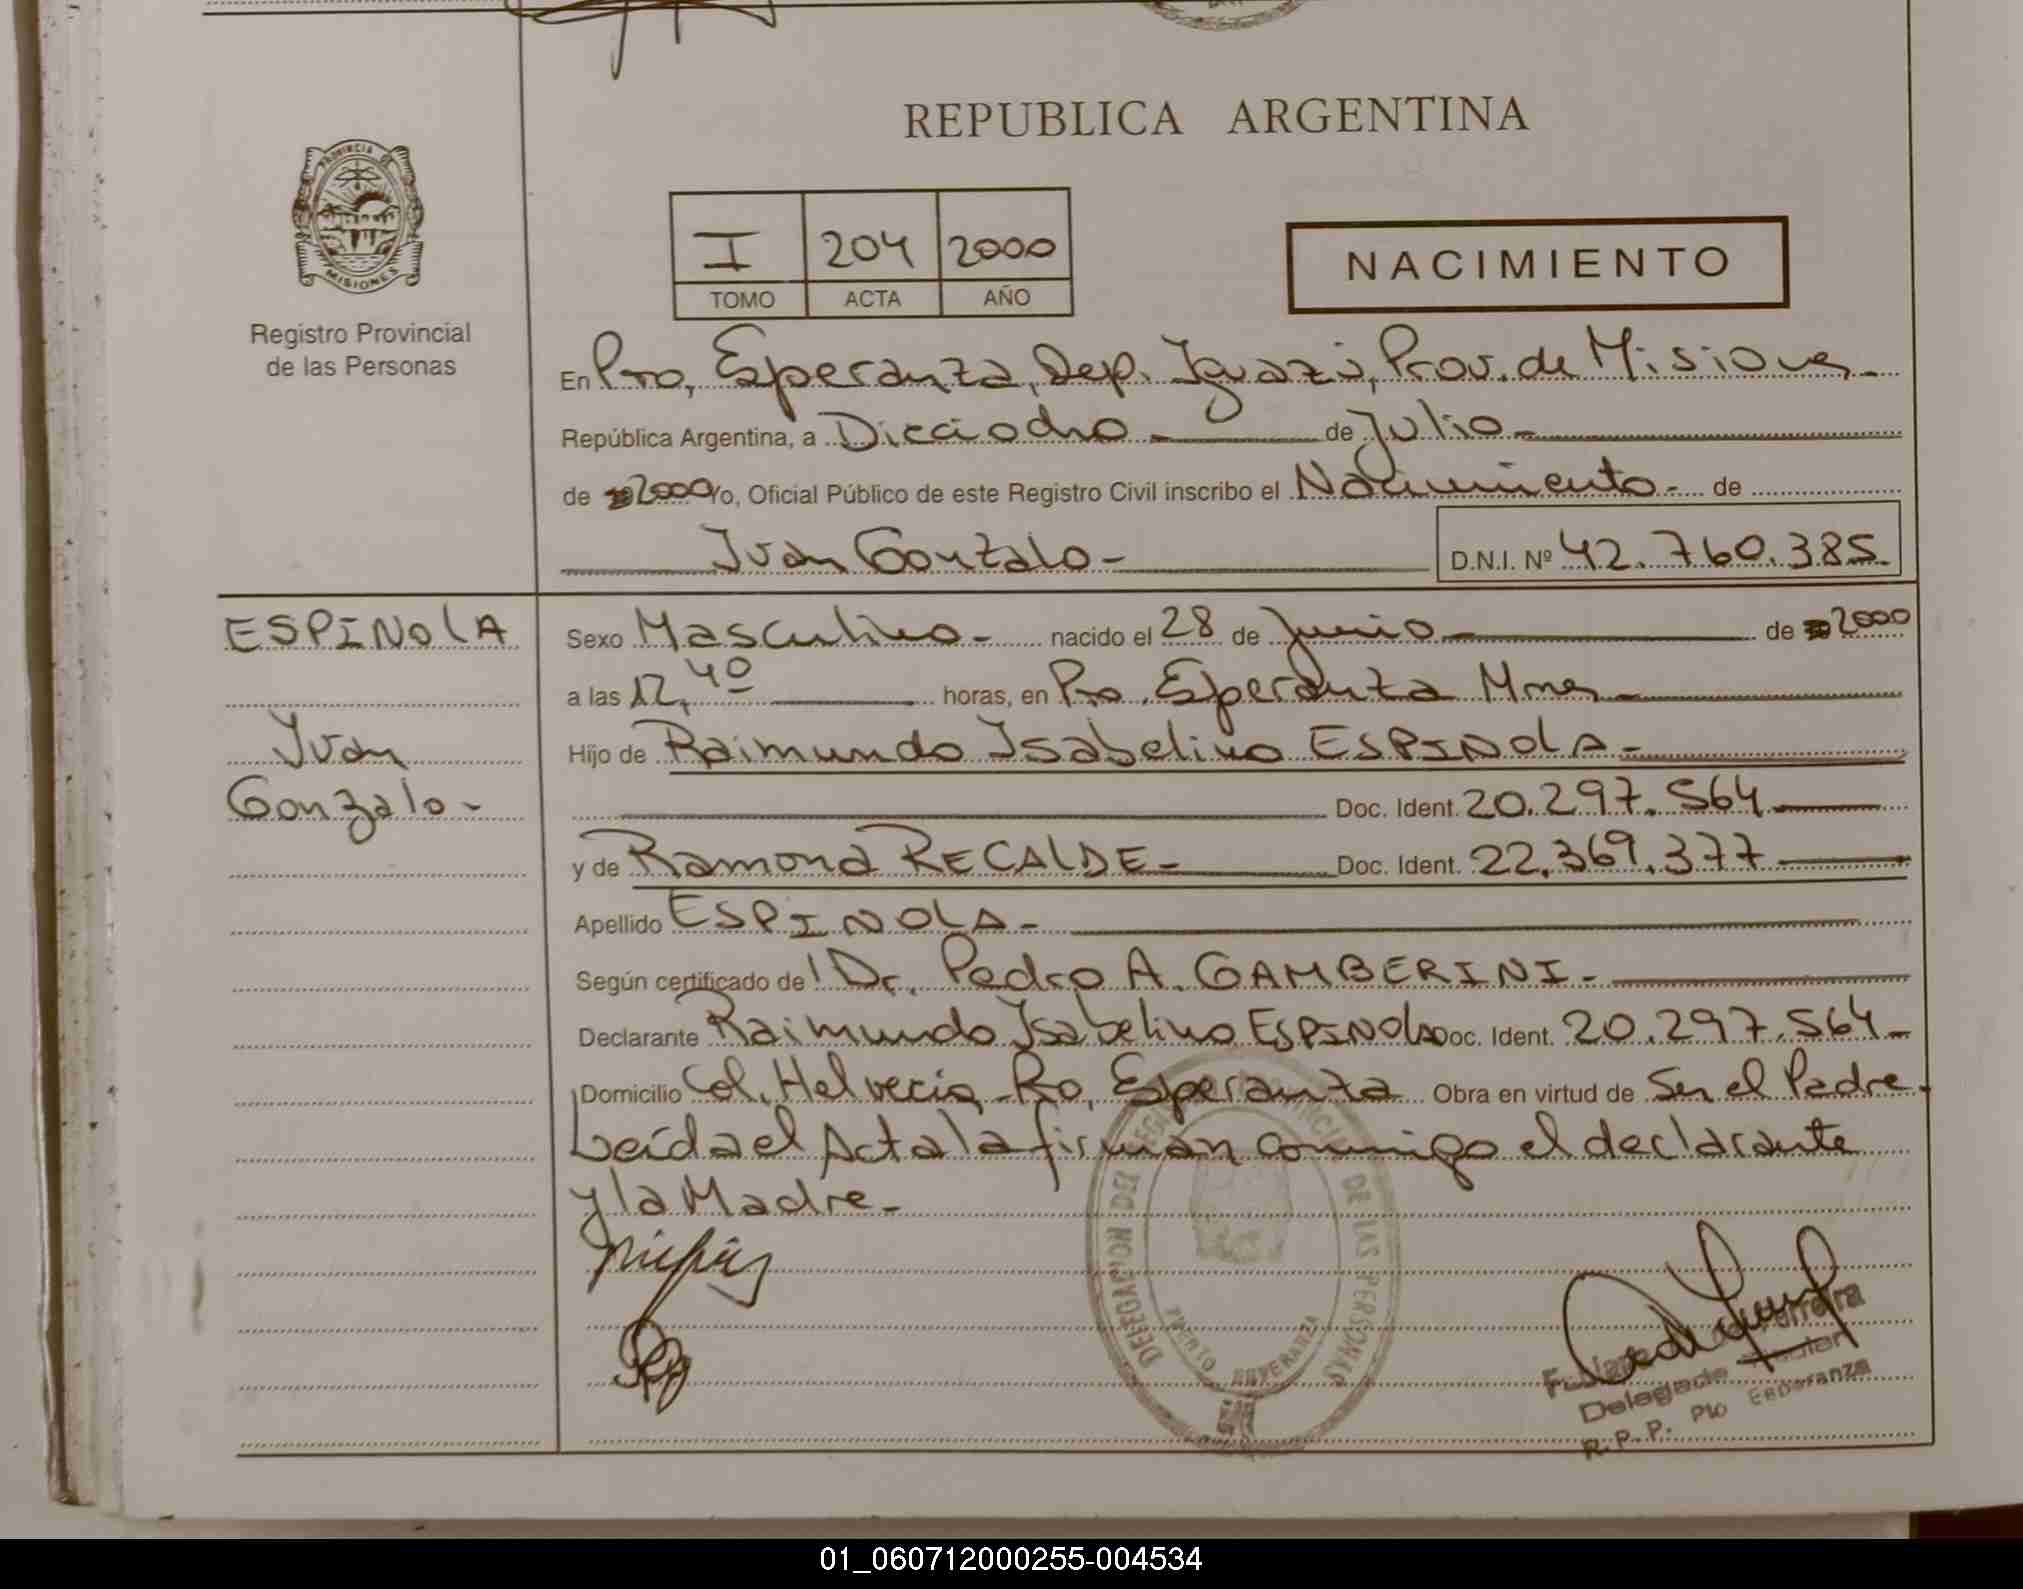 REPUBLICA ARGENTINA
PROVINCIA DE
MISIONES
Registro Provincial
de las Personas
I 204 2000
TOMO ACTA AÑO
NACIMIENTO
En Pto, Esperanza, Dep. Iguazú, Prov. de Misiones
República Argentina, a Dieciocho - de Julio -
de 2000 Yo, Oficial Público de este Registro Civil inscribo el Nacimiento - de
Ivan Gonzalo -
D.N.I. Nº 42.760.385
ESPINOLA
Ivan
Gonzalo -
Sexo Masculino - nacido el 28 de Junio - de 2000
a las 12,40 horas, en Pto. Esperanza Mnes -
Hijo de Raimundo Isabelino ESPINOLA -
Doc. Ident. 20.297.564
y de Ramona RECALDE - Doc. Ident. 22.369.377
Apellido ESPINOLA -
Según certificado del Dr. Pedro A. GAMBERINI -
Declarante Raimundo Isabelino ESPINOLA Doc. Ident. 20.297.564 -
Domicilio Col. Helvecia - Pto, Esperanza Obra en virtud de Ser el Padre.
Leída el Acta la firman conmigo el declarante
y la Madre -
DELEGACION DEL REGISTRO PROVINCIAL DE LAS PERSONAS
PUERTO ESPERANZA
Ferreira
Delegado Titular
R.P.P. Pto Esperanza
01_060712000255-004534